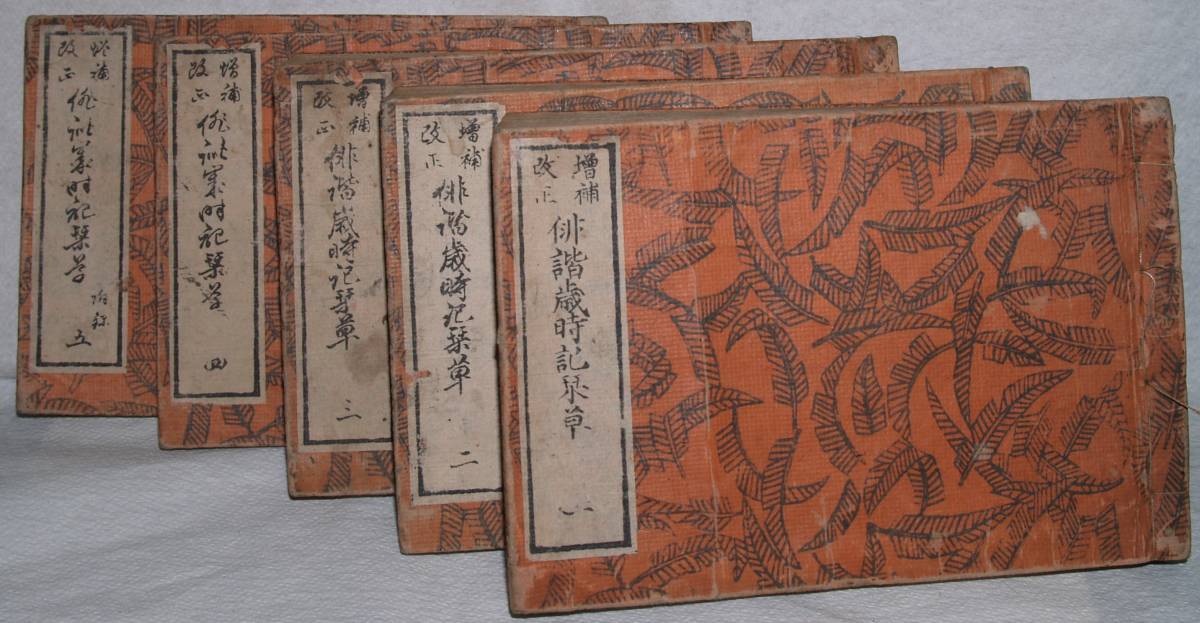 増補
改正
俳諧歳時記栞草
一
増補
改正
俳諧歳時記栞草
二
増補
改正
俳諧歳時記栞草
三
増補
改正
俳諧歳時記栞草
四
増補
改正
俳諧歳時記栞草
附録
五